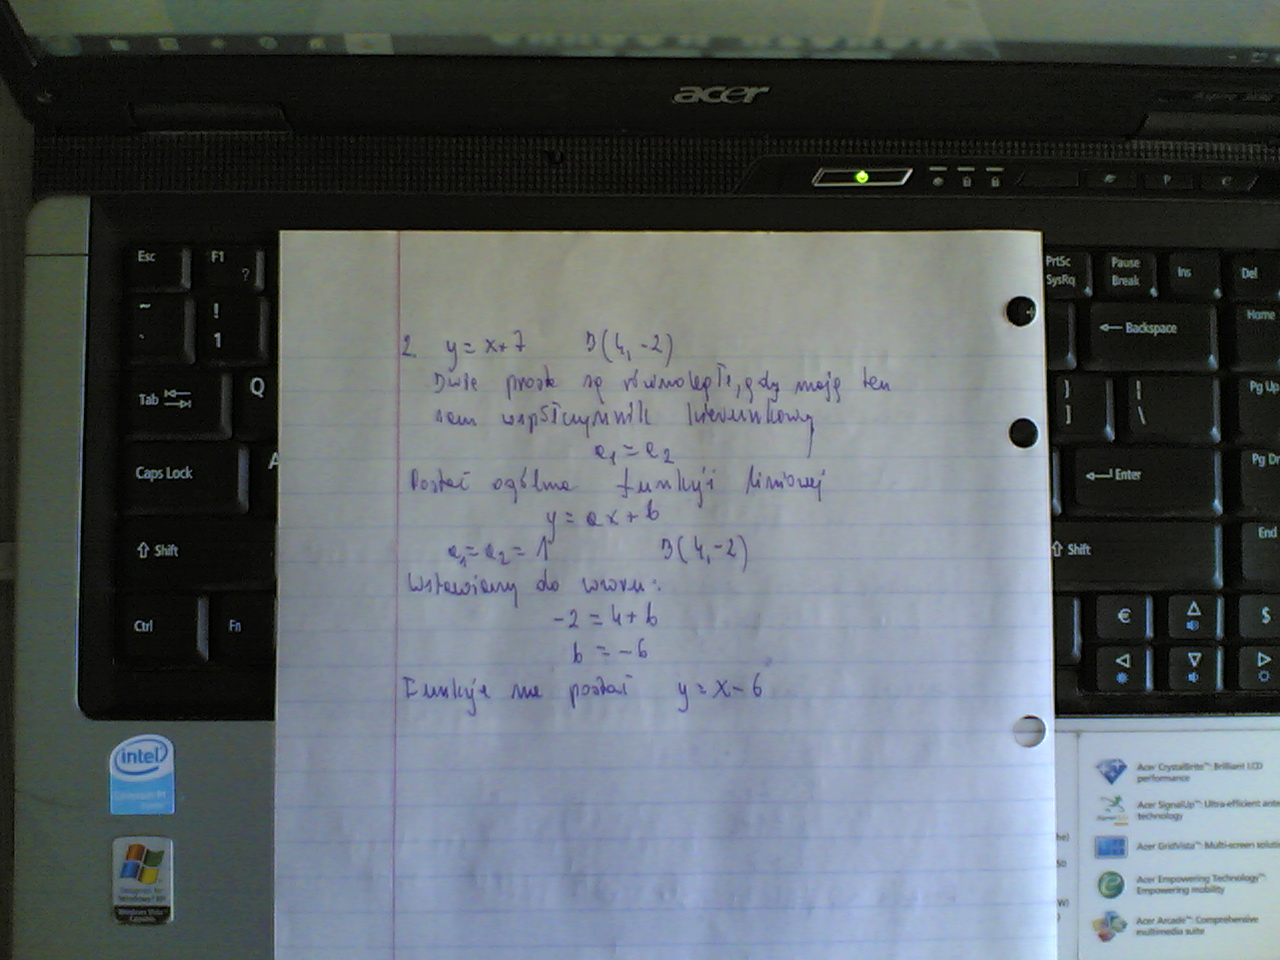 acer
Esc
F1
?
PrtSc
SysRq
Pause
Break
Ins
Del
~
`
!
1
Backspace
Home
Tab
Q
}
]
|
\
Pg Up
Caps Lock
A
Enter
Pg Dn
Shift
Shift
End
Ctrl
Fn
€
$
2. y = x+7 B(4,-2)
Dwie proste są równoległe, gdy mają ten
sam współczynnik kierunkowy
a₁ = a₂
Postać ogólna funkcji liniowej
y = ax + b
a₁ = a₂ = 1 B(4,-2)
Wstawiamy do wzoru:
-2 = 4 + b
b = -6
Funkcja ma postać y = x - 6
intel
Designed for
Windows® XP
Windows Vista™
Capable
Acer CrystalBrite™: Brilliant LCD
performance
Acer SignalUp™: Ultra-efficient
technology
Acer GridVista™: Multi-screen
Acer Empowering Technology™:
Empowering mobility
Acer Arcade™: Comprehensive
multimedia suite